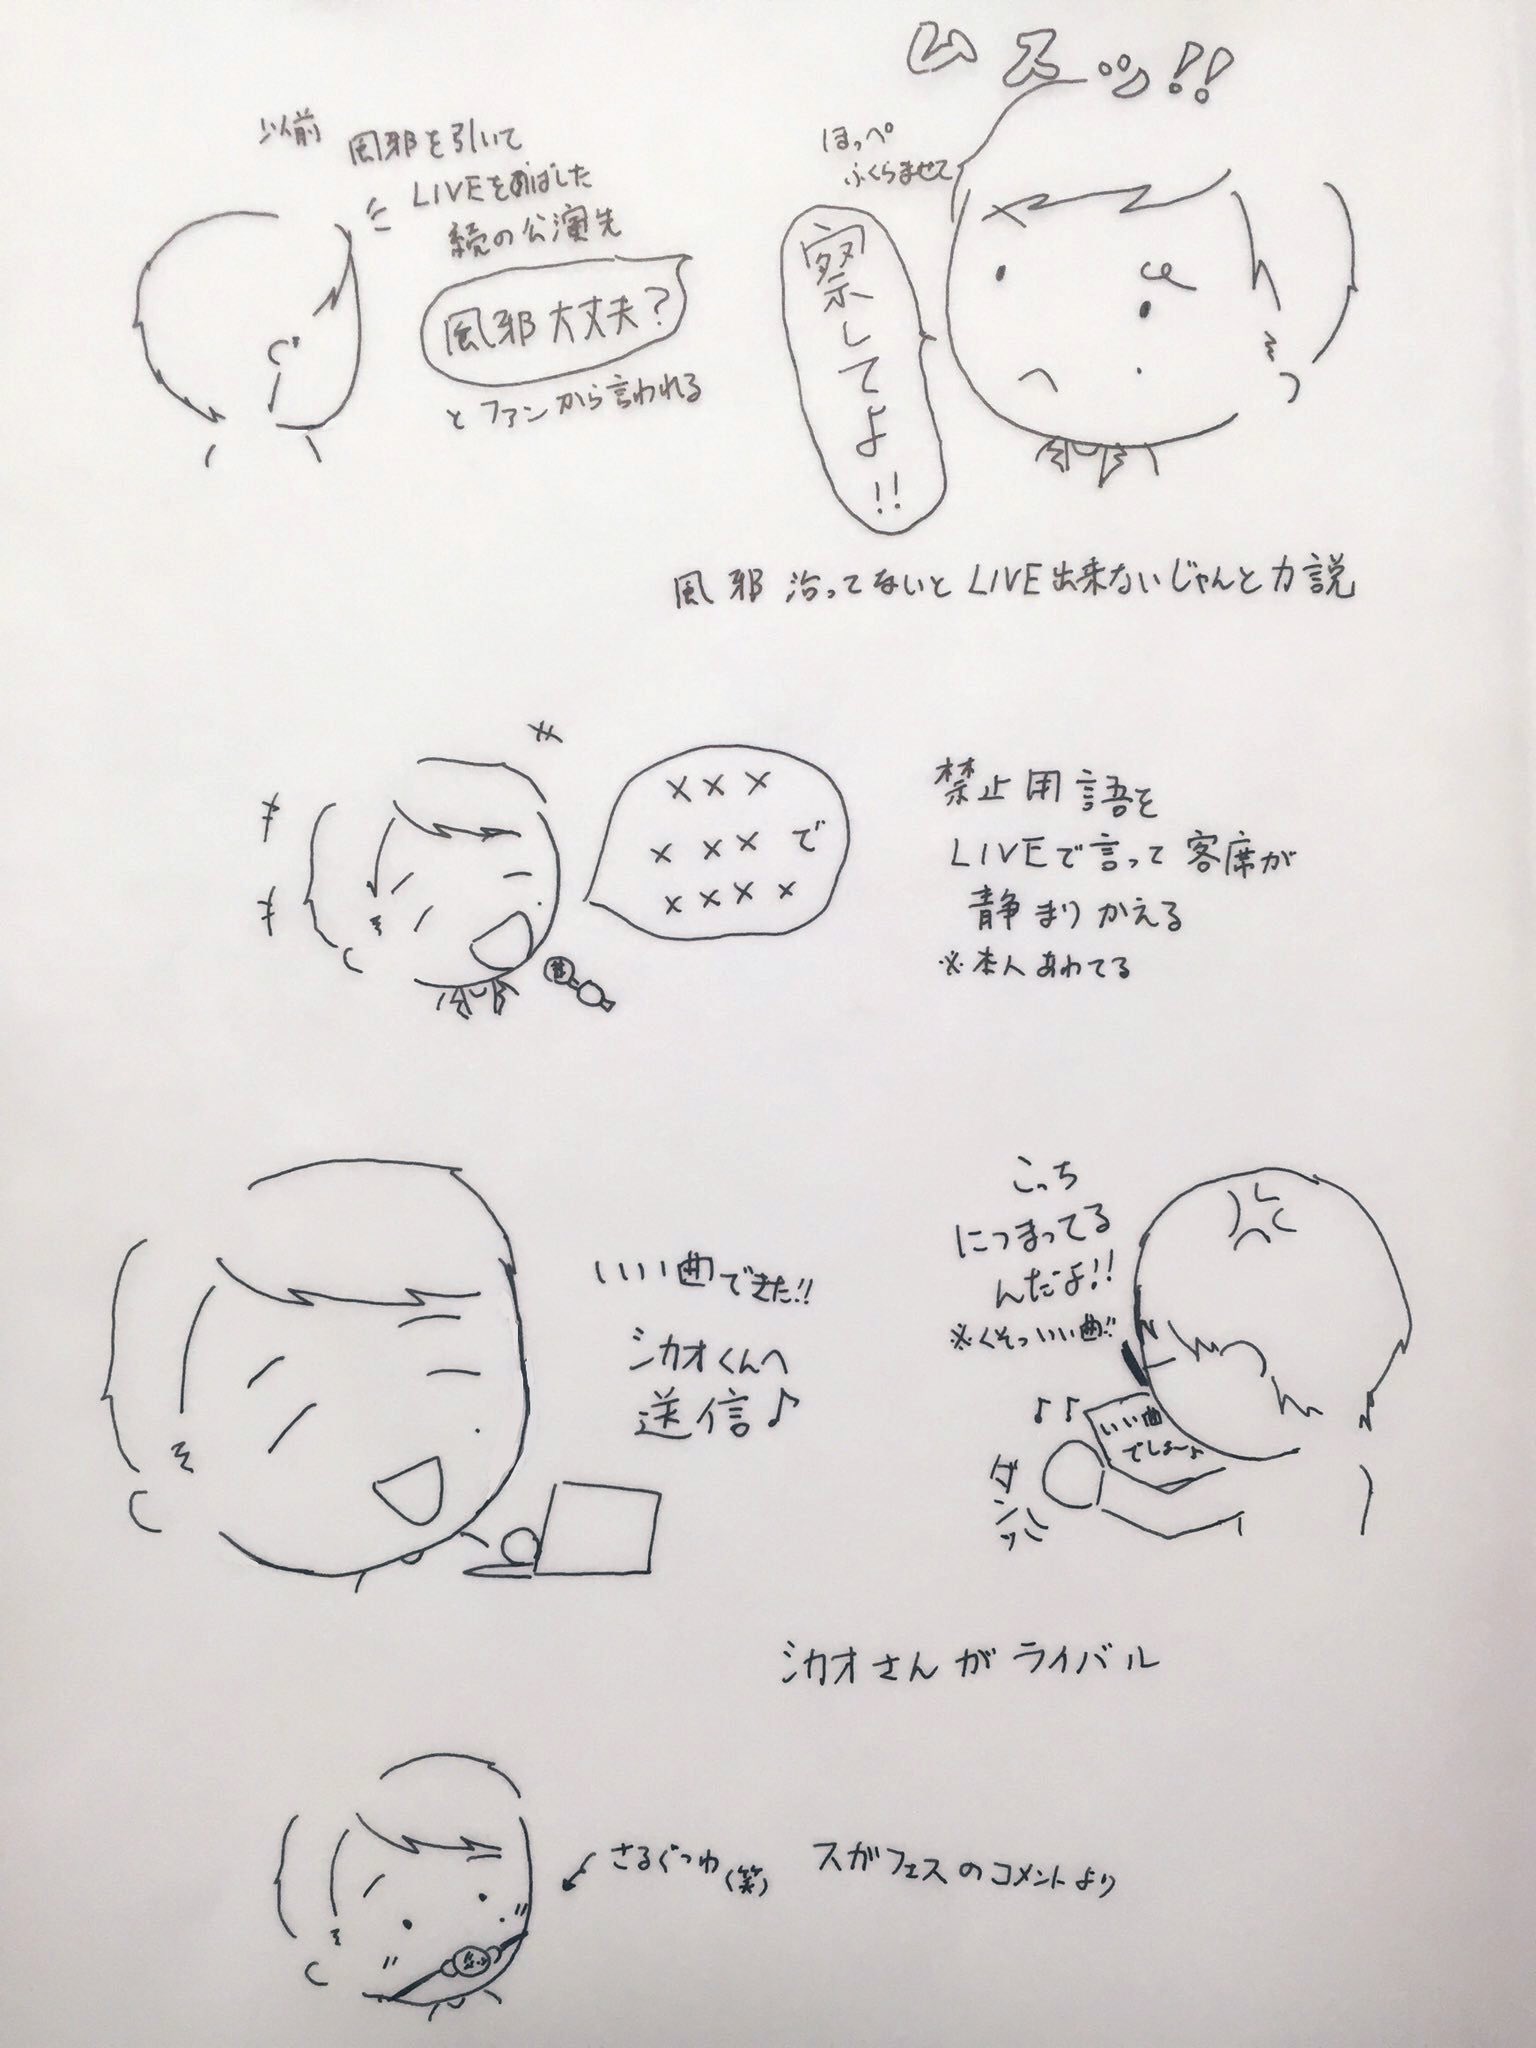 ムスッ!!
以前
風邪を引いて
LIVEをとばした
続の公演先
風邪大丈夫?
とファンから言われる
ほっぺ
ふくらませて
察してよ!!
風邪治ってないとLIVE出来ないじゃんと力説
×××
××××で
××××
禁止用語を
LIVEで言って客席が
静まりかえる
※本人あわてる
いい曲できた!!
シカオくんへ
送信♪
こっち
につまってる
んだよ!!
※くそっいい曲!!
♪♪
いい曲
でしょ〜♪
ダンッ
シカオさんがライバル
さるぐつわ(笑)
スガフェスのコメントより